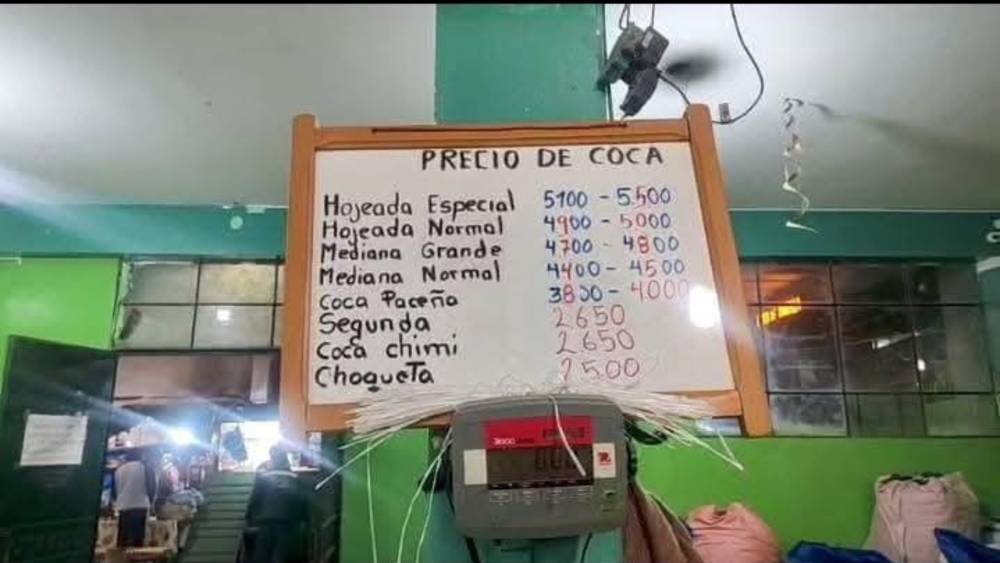 PRECIO DE COCA
Hojeada Especial 5100 - 5.500
Hojeada Normal 4900 - 5000
Mediana Grande 4700 - 4800
Mediana Normal 4400 - 4500
Coca Paceña 3800 - 4000
Segunda 2650
Coca chimi 2650
Choqueta 2500
3000